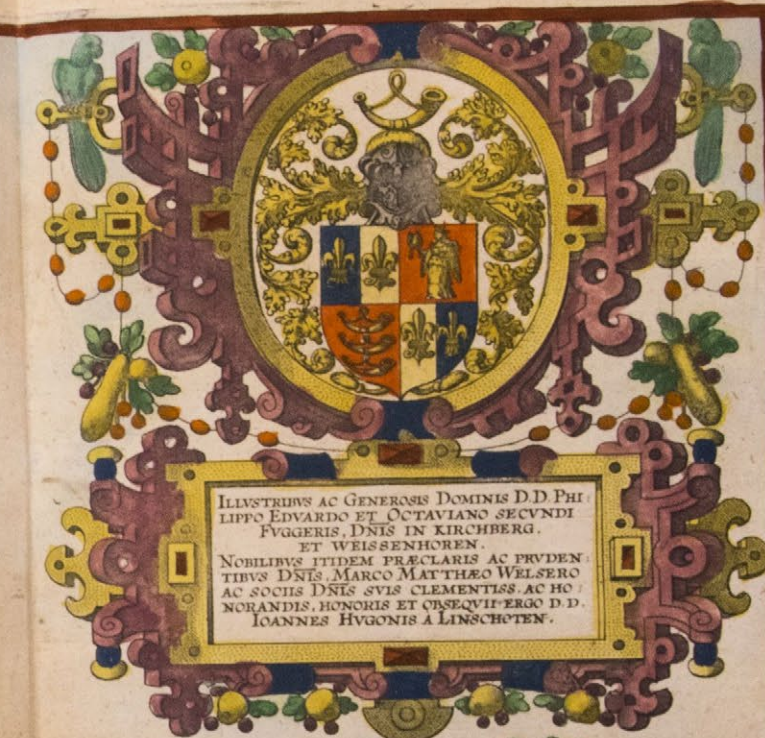 ILLVSTRIBVS AC GENEROSIS DOMINIS D.D. PHI:
LIPPO EDVARDO ET OCTAVIANO SECVNDI
FVGGERIS, DN̅IS IN KIRCHBERG.
ET WEISSENHOREN.
NOBILIBVS ITIDEM PRÆCLARIS AC PRVDEN:
TIBVS DN̅IS. MARCO MATTHÆO WELSERO
AC SOCIIS DN̅IS SVIS CLEMENTISS. AC HO:
NORANDIS, HONORIS ET OBSEQVII ERGO D.D.
IOANNES HVGONIS A LINSCHOTEN.